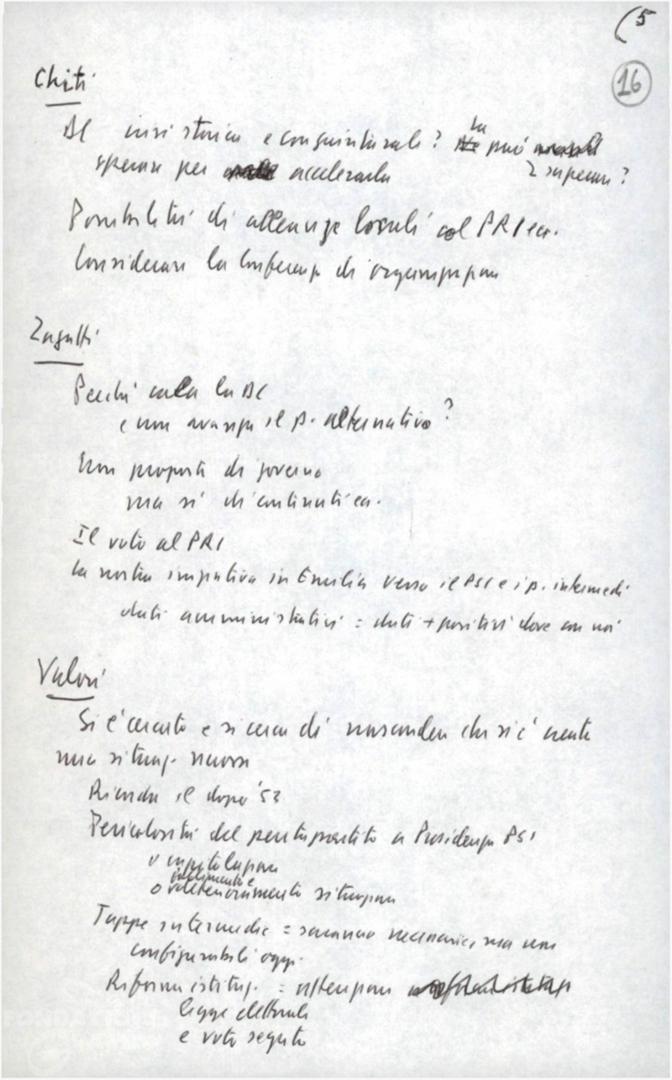 (5
16
Chiti
DC crisi storica e congiunturale? la può
sperare per accelerarla 2 superare?
Possibilità di alleanze locali col PRI ecc.
Considerare la Conferenza di organizzazione
Zagatti
Perché cala la DC
e non avanza il p. alternativo?
Non proposta di governo
ma sì di continuità ecc.
Il voto al PRI
la nostra iniziativa in Emilia verso il PSI e i p. intermedi
dati amministrativi = dati + positivi dove con noi
Valori
Si è cercato e si cerca di nascondere che si è creata
una situaz. nuova
Ricorda il dopo '53
Pericolosità del pentapartito a Presidenza PSI
o
o deterioramento situazione
Tappe intermedie = saranno necessarie, ma non
configurabili oggi.
Riforma istituz. = attenzione
legge elettorale
e voto segreto